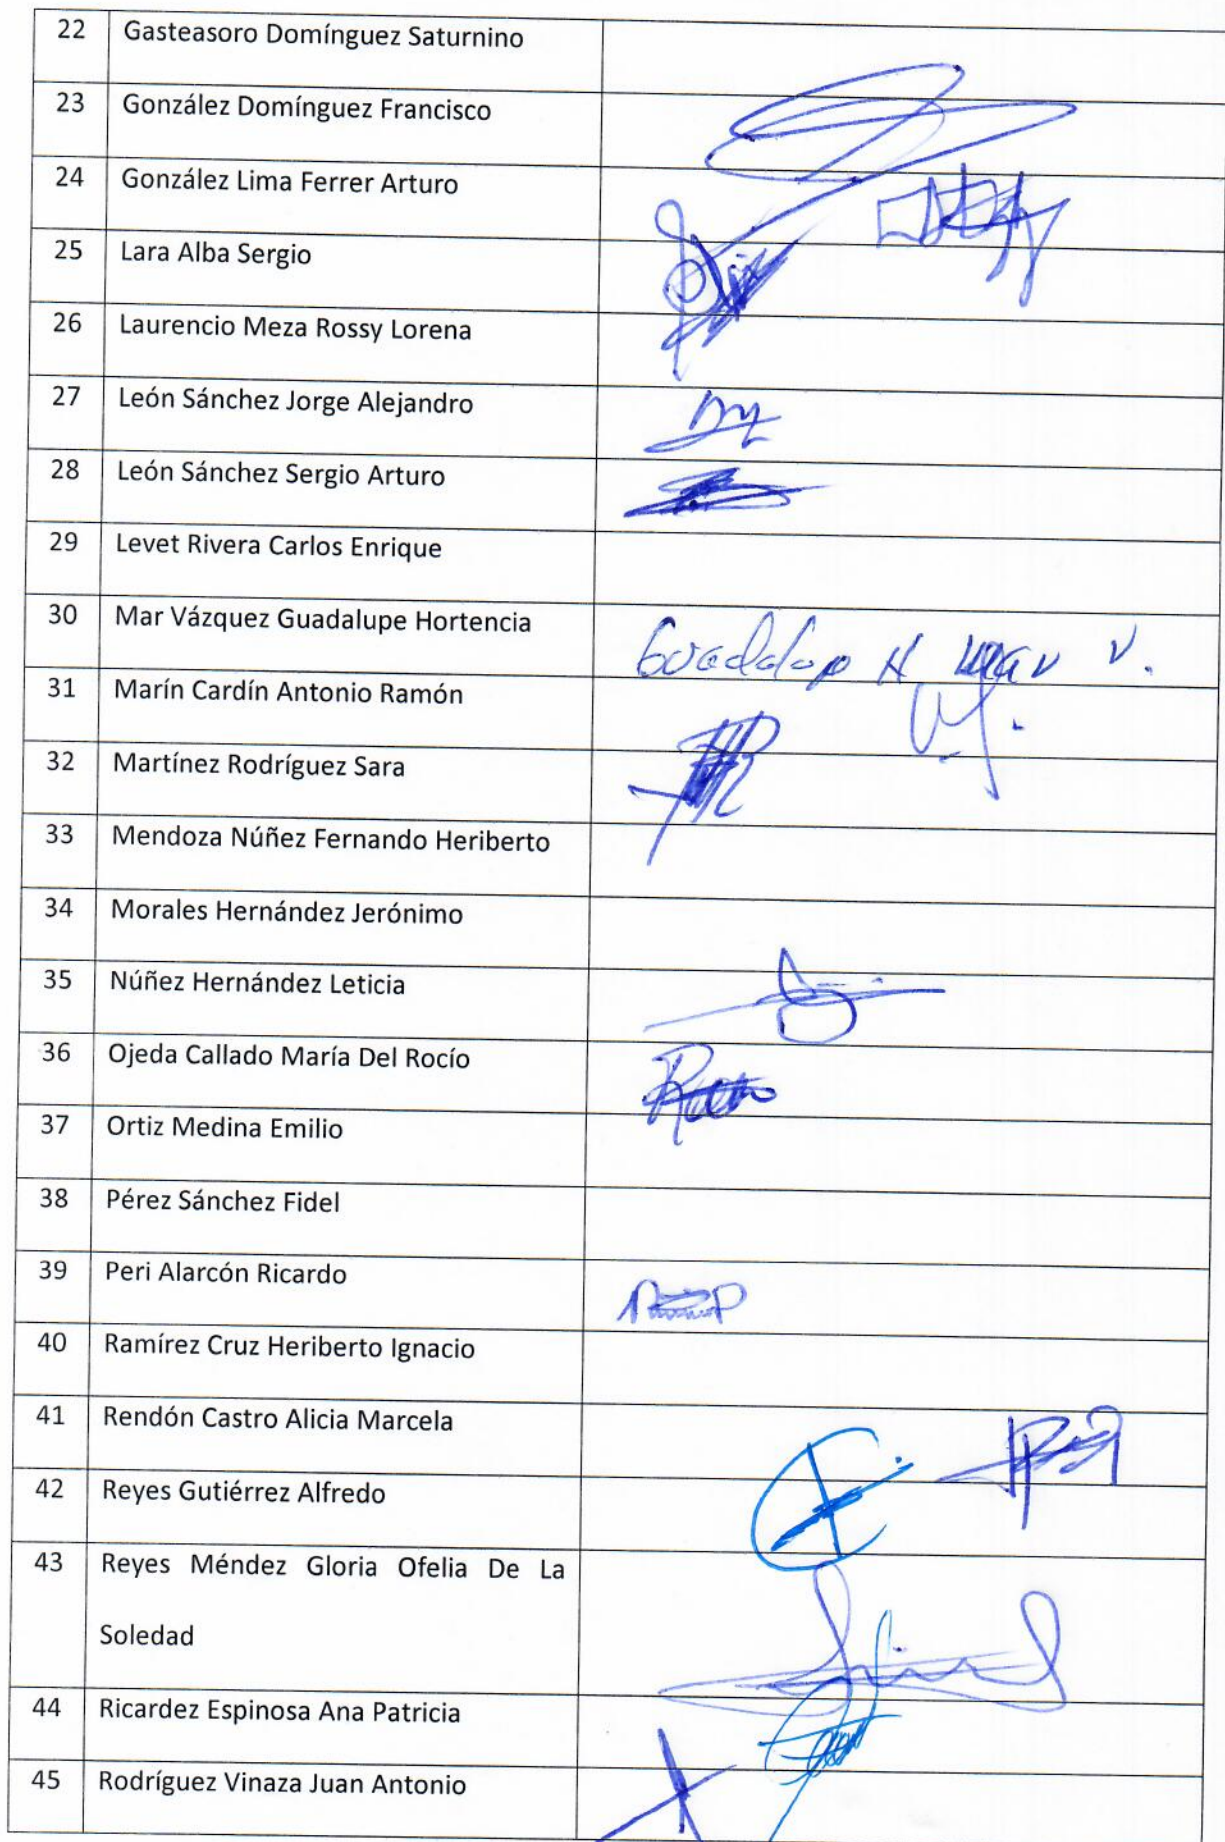 22 Gasteasoro Domínguez Saturnino
23 González Domínguez Francisco
24 González Lima Ferrer Arturo
25 Lara Alba Sergio
26 Laurencio Meza Rossy Lorena
27 León Sánchez Jorge Alejandro
28 León Sánchez Sergio Arturo
29 Levet Rivera Carlos Enrique
30 Mar Vázquez Guadalupe Hortencia
31 Marín Cardín Antonio Ramón
32 Martínez Rodríguez Sara
33 Mendoza Núñez Fernando Heriberto
34 Morales Hernández Jerónimo
35 Núñez Hernández Leticia
36 Ojeda Callado María Del Rocío
37 Ortiz Medina Emilio
38 Pérez Sánchez Fidel
39 Peri Alarcón Ricardo
40 Ramírez Cruz Heriberto Ignacio
41 Rendón Castro Alicia Marcela
42 Reyes Gutiérrez Alfredo
43 Reyes Méndez Gloria Ofelia De La
Soledad
44 Ricardez Espinosa Ana Patricia
45 Rodríguez Vinaza Juan Antonio